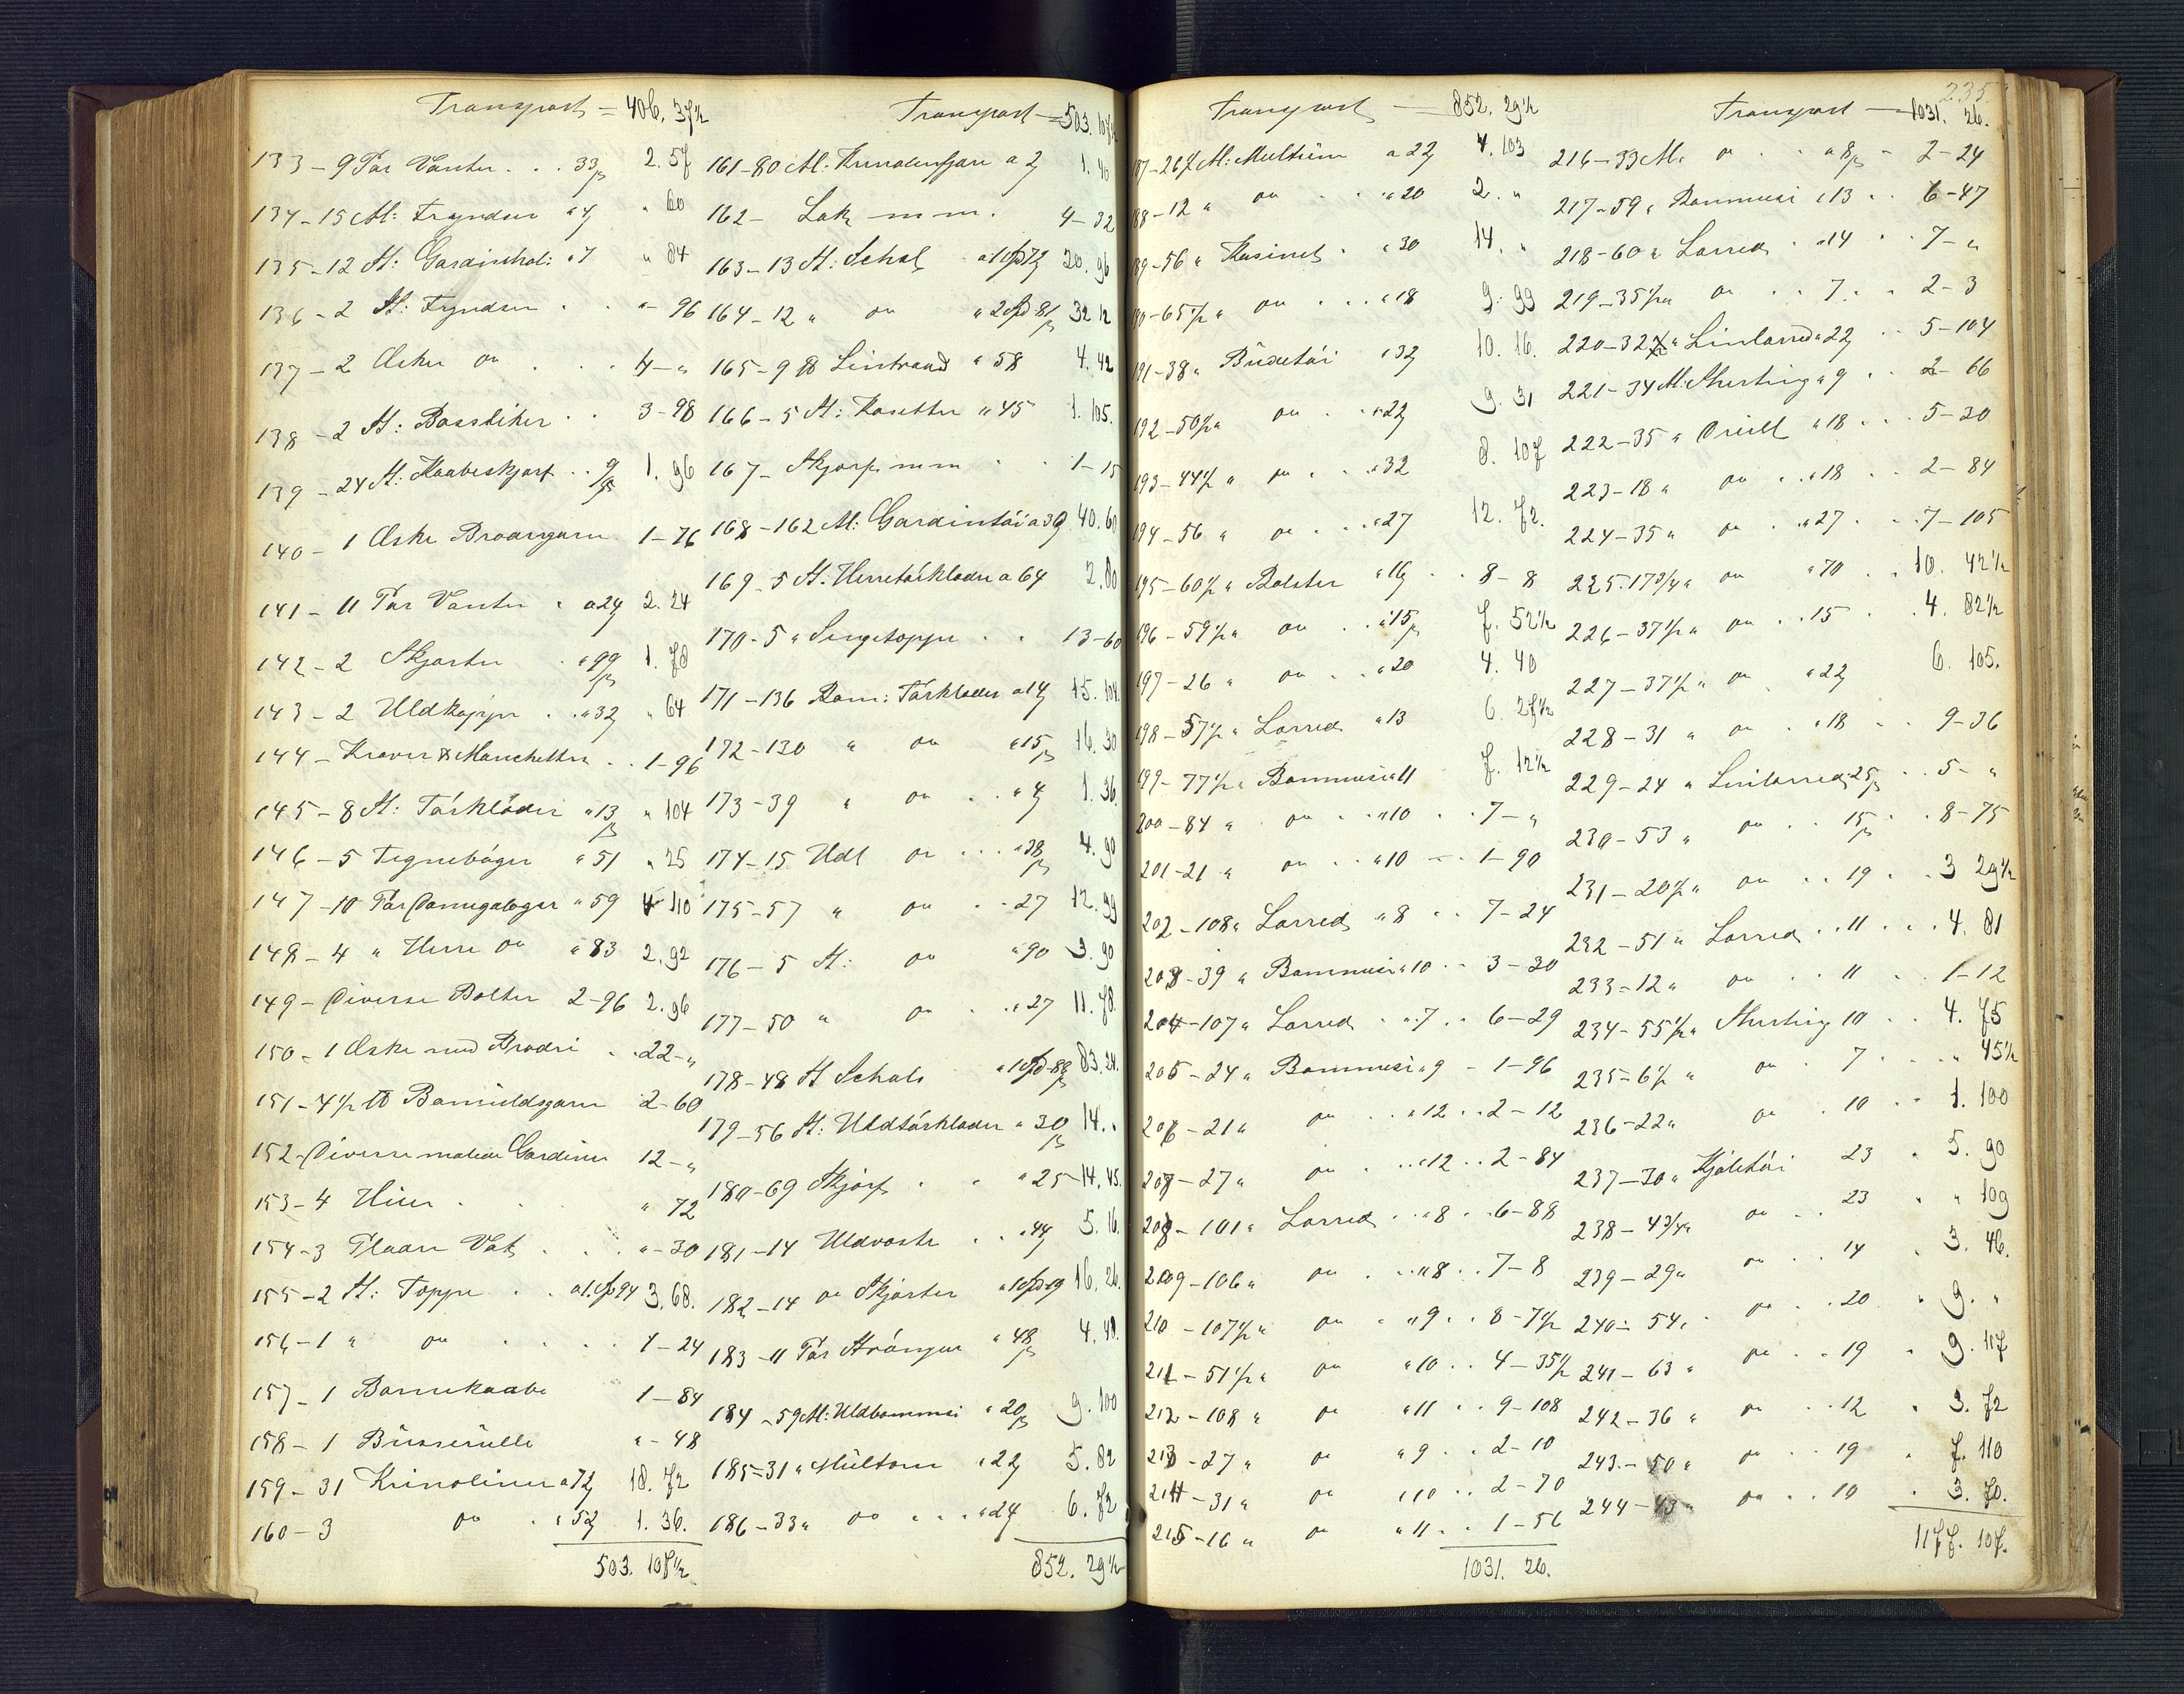 Transport = 406. 37½
133 - 9 Par Vanter . . . 33ß 2. 57
134 - 15 St: Trøndser a 4ß " 60
135 - 12 St: Gardinhol: a 7 " 84
136 - 2 St: Trøndser . . " - 96
137 - 2 Æsker do . . . 4 - "
138 - 2 St: Bosstiker . . 3 - 98
139 - 24 St: Kaabeskjørt . . 9ß 1. 96
140 - 1 Æske Brodergarn 1 - 76
141 - 11 Par Vanter " a 24 2. 24
142 - 2 Skjorter . " 99ß 1. 78
143 - 2 Uldkapper . . " 32 " 64
144 - Kraver & Manchetter . . 1 - 96
145 - 8 St: Tørklæder " 13ß " 104
146 - 5 Tegnebøger " 51 " 25
147 - 10 Par Damegaloger " 59 4 110
148 - 4 " Herre do " 83 2. 92
149 - Diverse Bolter 2 - 96 2. 96
150 - 1 Æske med Broderi . . 22 - "
151 - 4½ ℔ Bomuldsgarn 2 - 60
152 - Diverse malede Gardiner 12 - "
153 - 4 Huer . . " 72
154 - 3 Plader Vat . . . " - 30
155 - 2 St: Toppe . . a 1 rd 94 3. 68.
156 - 1 " do . . . . 1 - 24
157 - 1 Barnekaabe 1 - 84
158 - 1 Busserulle " - 48
159 - 31 Krinoliner a 72 18. 72
160 - 3 do . " 52 1. 36.
503. 107½
Transport = 503. 107½
161 - 80 Al: Krinolinfjær a 2 1. 40
162 - Lak m m . 4 - 32
163 - 13 St: Schal a 1 rd 72 20. 96
164 - 12 " do " 2 rd 81ß 32 12
165 - 9 ℔ Lintraad " 58 4. 42
166 - 5 St: Korsetter " 45 1. 105.
167 - Skjørt m m . . 1 - 15
168 - 162 Al: Gardintøi a 30 40. 60
169 - 5 St: Herretørklæder a 64 2. 80
170 - 5 " Sengetæpper . . 13 - 60
171 - 136 Bom: Tørklæder a 14 15. 104
172 - 130 " do " 15ß 16. 30
173 - 39 " do . . " 4 1. 36
174 - 15 Uld do . . . " 38ß 4. 90
175 - 57 " do . . - 27 12. 99
176 - 5 St: do " 90 3. 90
177 - 50 " do . . " 27 11. 78
178 - 48 St Schals " 1 rd - 88ß 83. 24.
179 - 56 St: Uldtørklæder " 30ß 14. "
180 - 69 Skjørt . . " 25 - 14. 45.
181 - 14 Uldveste . . " 44 5. 16
182 - 14 do Skjorter " 1 rd 19 16. 26.
183 - 11 Par Strømper " 48ß 4. 48.
184 - 59 Al: Uldbommesi " 20ß 9. 100
185 - 31 " Multom " 22 5. 82
186 - 33 " do " . . " 24 6. 72
852. 29½
Transport — 852. 29½
187 - 26½ Al: Multum a 22 4. 103
188 - 12 " do . . " 20 2. "
189 - 56 " Kasinet . " 30 14. "
190 - 65½ " do . . . " 18 9. 99
191 - 38 " Buxetøi " 32 10. 16.
192 - 50½ " do . . " 22 9. 31
193 - 44½ " do . . " 32 8. 107
194 - 56 " do . . . " 27 12. 72.
195 - 60½ " Bolster " 16 . . 8 - 8
196 - 59½ " do . . " 15ß 7. 52½
197 - 26 " do . . " 20 4. 40
198 - 57½ " Lærred " 13 6. 27½
199 - 77½ " Bommesi " 11 7. 12½
200 - 84 " do . . " 10 . . 7 - "
201 - 21 " do . . " 10 — 1 - 90
202 - 108 " Lærred " 8 . . 7 - 24
203 - 39 " Bommesi " 10 . . 3 - 30
204 - 107 " Lærred . " 7 . . 6 - 29
205 - 24 " Bommesi " 9 - 1 - 96
206 - 21 " do . . " 12 . . 2 - 12
207 - 27 " do . . . " 12 . . 2 - 84
208 - 101 " Lærred . . " 8 . . 6 - 88
209 - 106 " do . . . " 8 . . 7 - 8
210 - 107½ " do " " 9 . . 8 - 7½
211 - 51½ " do " 10 . . 4 - 35½
212 - 108 " do " 11 . . 9 - 108
213 - 27 " do " 9 . . 2 - 10
214 - 31 " do " 10 . . 2 - 70
215 - 16 " do " 11 . . 1 - 56
1031. 26.
235.
Transport — 1031. 26.
216 - 33 Al. do . . a 8ß - 2 - 24
217 - 59 " Bommesi " 13 . . 6 - 47
218 - 60 " Lærred . " 14 . . 7 - "
219 - 35½ " do . . 7 . . 2 - 3
220 - 32 " Linlærred " 22 . . 5 - 104
221 - 34 Al. Shirting " 9 . . 2 - 66
222 - 35 " Dreill " 18 . . 5 - 30
223 - 18 " do . . " 18 . . 2 - 84
224 - 35 " do . . " 27 . . 7 - 105
225 - 17¾ " do " 70 . . 10. 42½
226 - 37½ " do . . 15 . . 4. 82½
227 - 37½ " do " 22 6. 105.
228 - 31 " do . " 18 . . 9 - 36
229 - 24 " Linlærred 25ß . . 5 - "
230 - 53 " do . . 15ß . . 8 - 75
231 - 20½ " do . . 19 . . 3 29½
232 - 51 " Lærred . . 11 . . . 4. 81
233 - 12 " do . . 11 . . 1 - 12
234 - 55½ " Shirting 10 . . 4. 75
235 - 6½ " do . 7 . . . " 45½
236 - 22 " do . 10 . . 1. 100
237 - 30 " Kjoletøi 23 . 5. 90
238 - 4¾ " do . . 23 . " 109
239 - 29 " do . . 14 . 3. 46.
240 - 54 " do . . 20 . 9. "
241 - 63 " do . . 19 . 9. 117
242 - 36 " do . . 12 . 3. 72
243 - 50 " do . . 19 . 7. 110
244 - 43 " do . . 10 . 3. 70.
1177. 107.